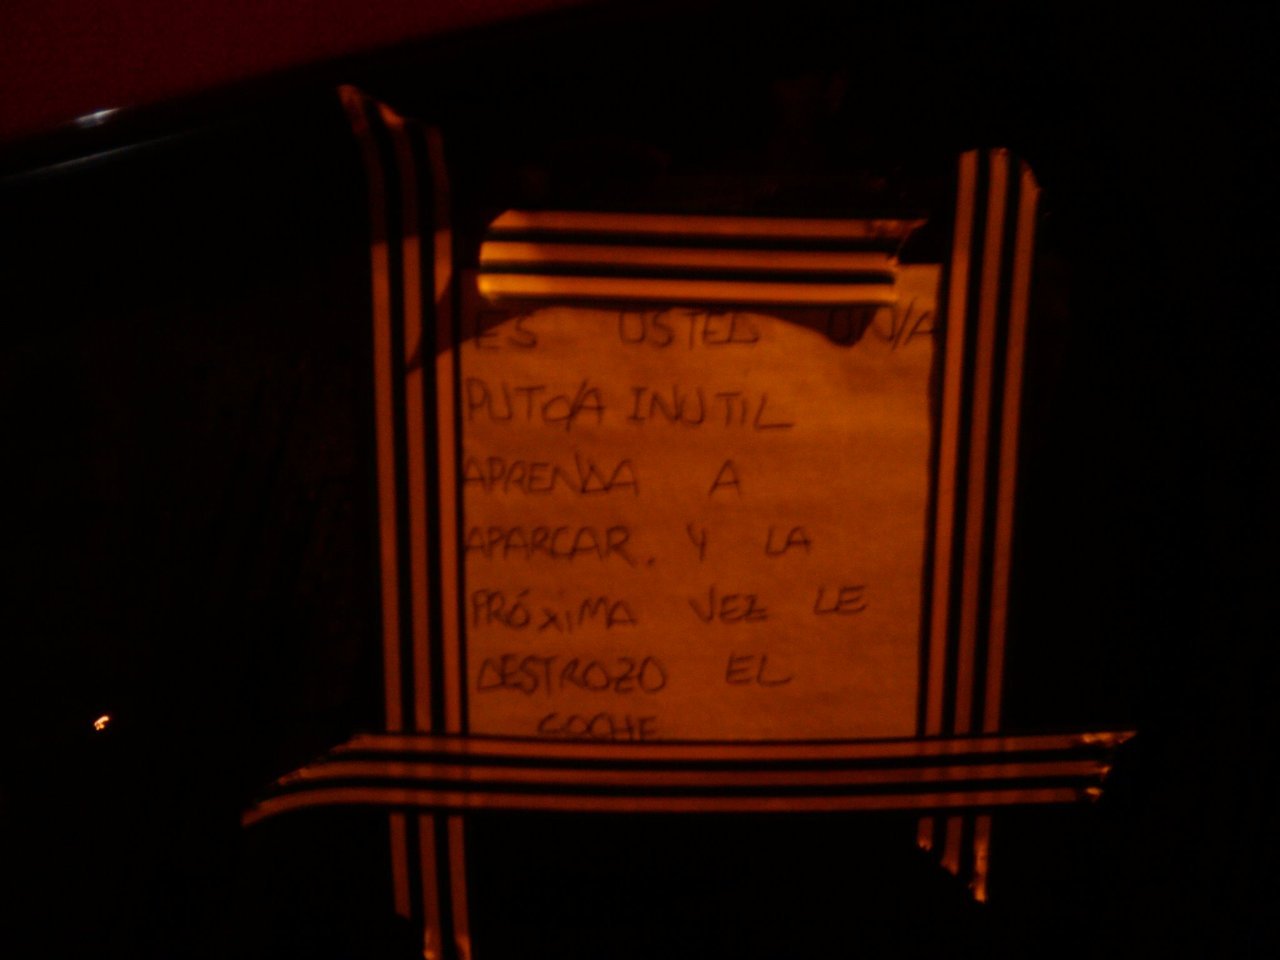 ES USTED UN/A
PUTO/A INUTIL
APRENDA A
APARCAR. Y LA
PRÓXIMA VEZ LE
DESTROZO EL
COCHE